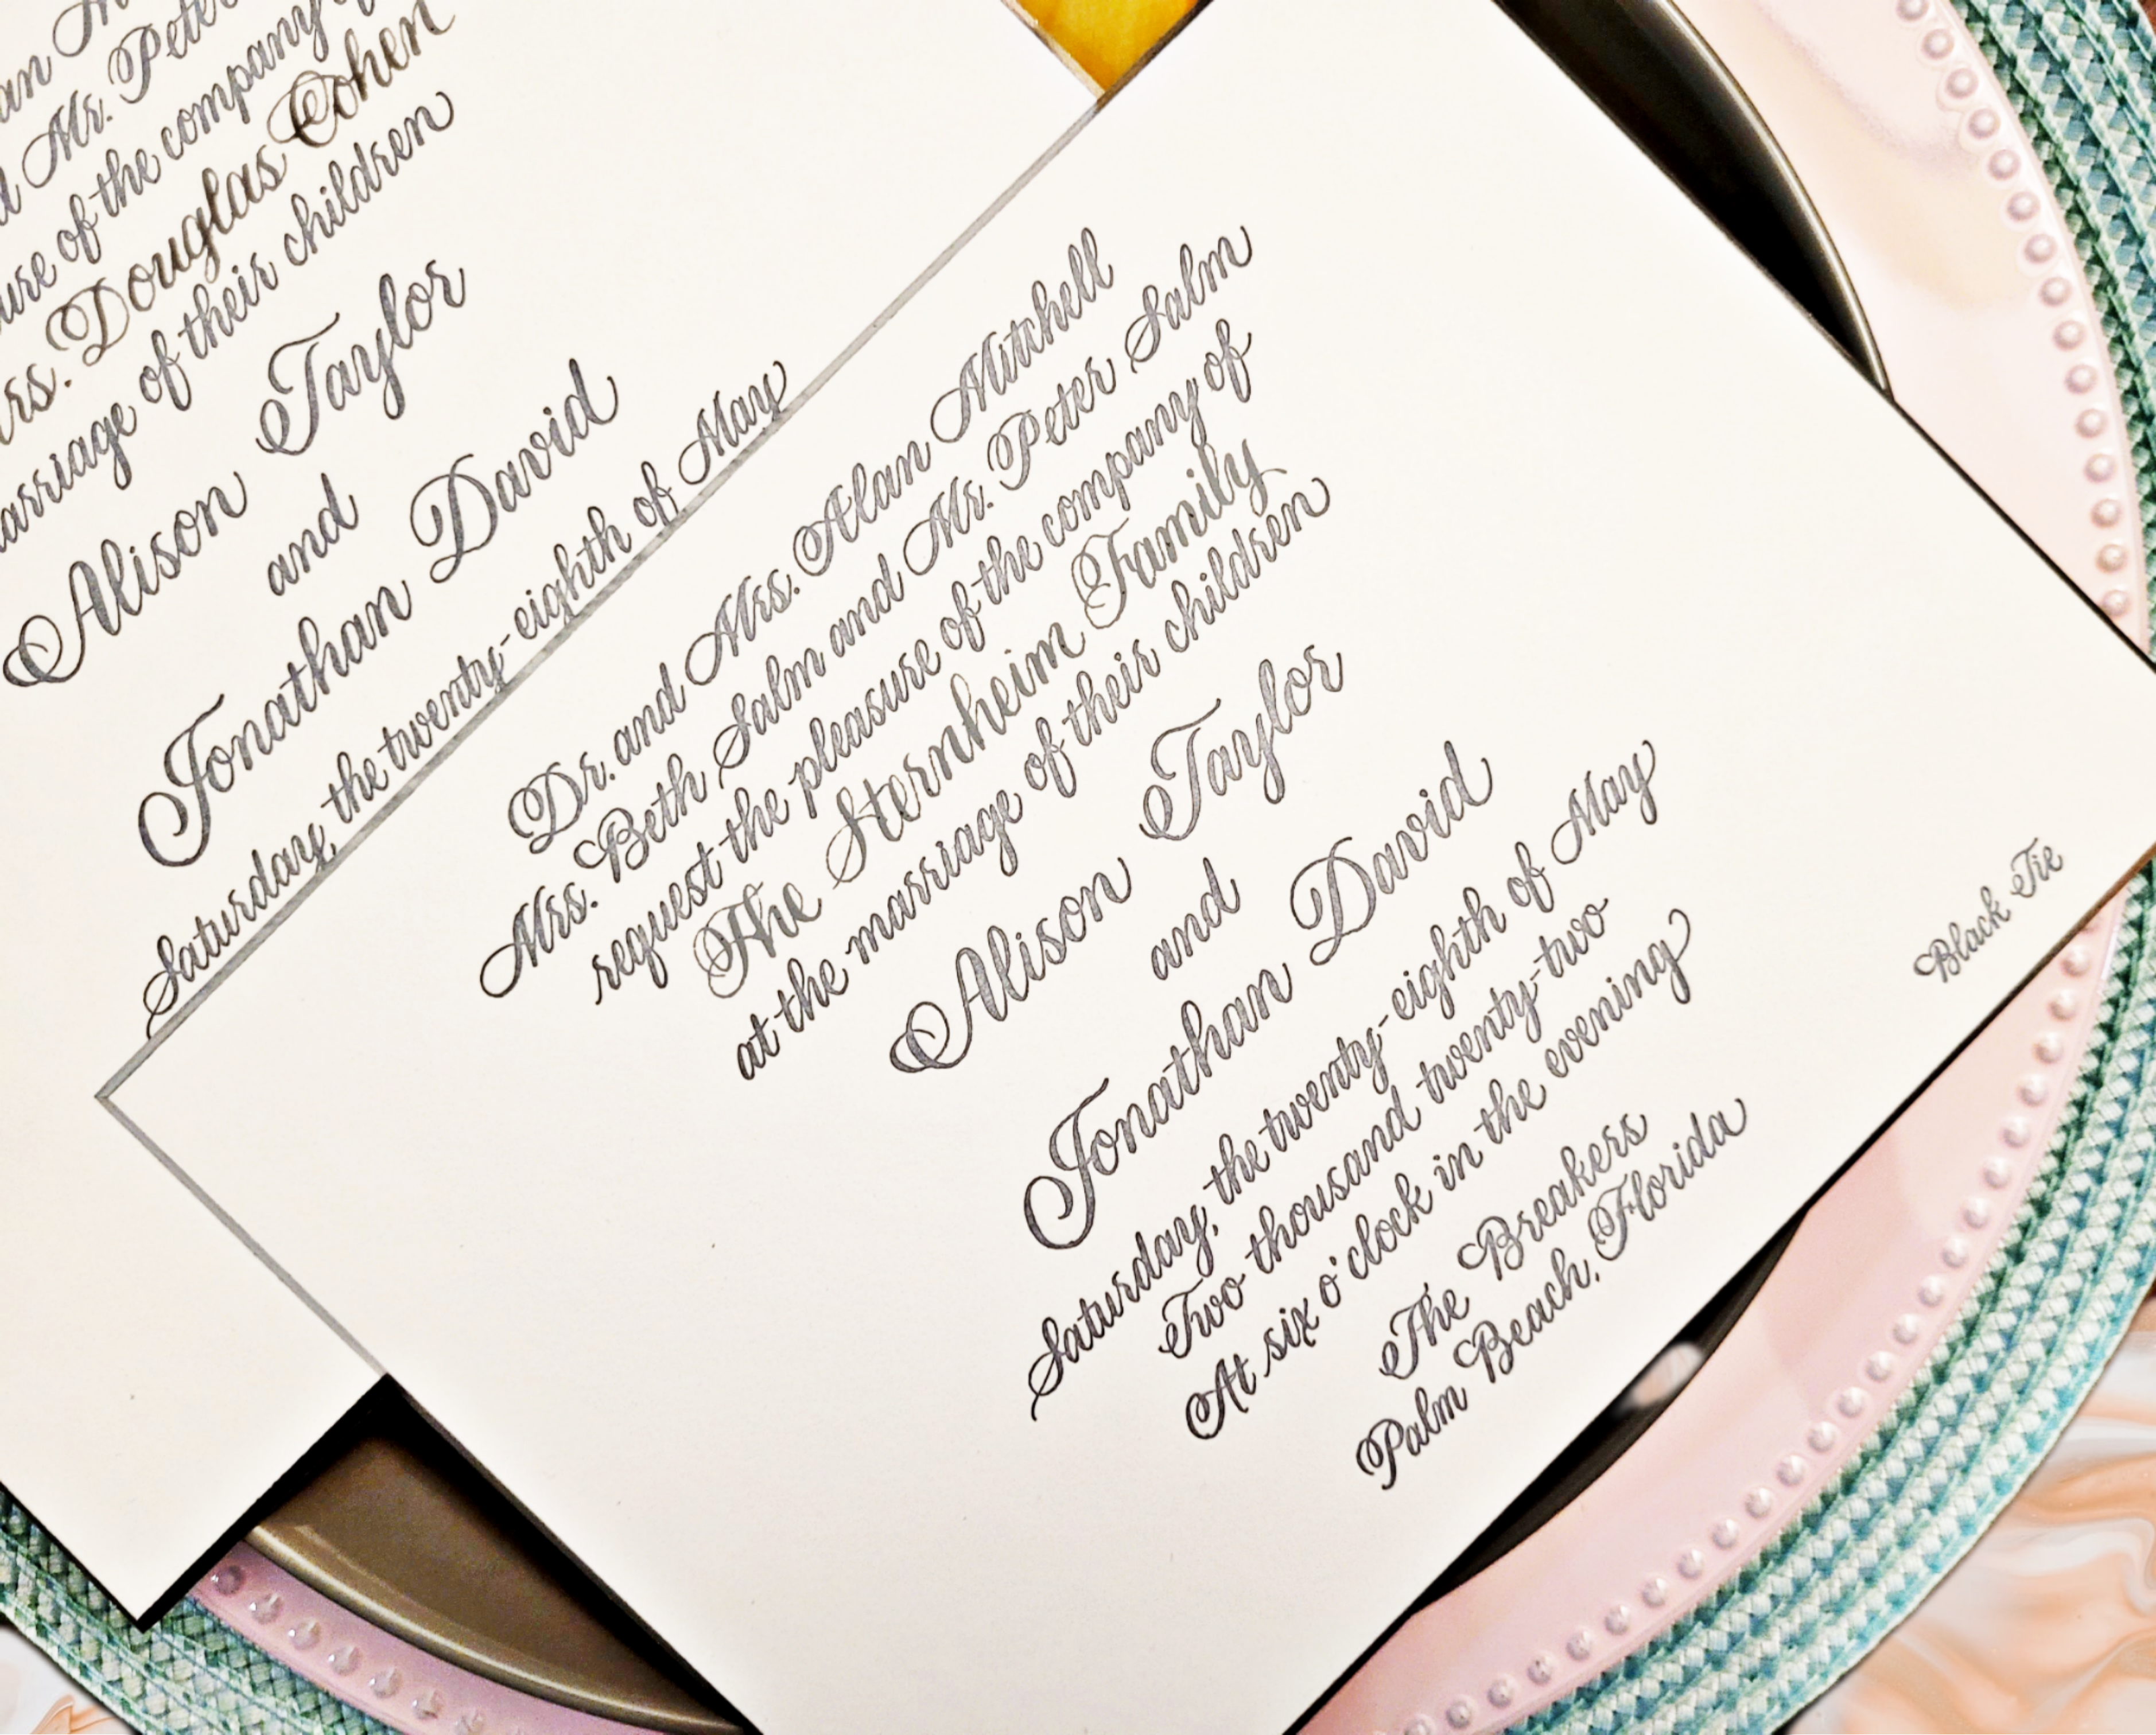 Mr. Peter
ure of the company
rs. Douglas Cohen
arriage of their children
Alison Taylor
and
Jonathan David
Saturday, the twenty-eighth of May
Dr. and Mrs. Alan Mitchell
Mrs. Beth Salm and Mr. Peter Salm
request the pleasure of the company of
The Sternheim Family
at the marriage of their children
Alison Taylor
and
Jonathan David
Saturday, the twenty-eighth of May
Two thousand twenty-two
At six o'clock in the evening
The Breakers
Palm Beach, Florida
Black Tie